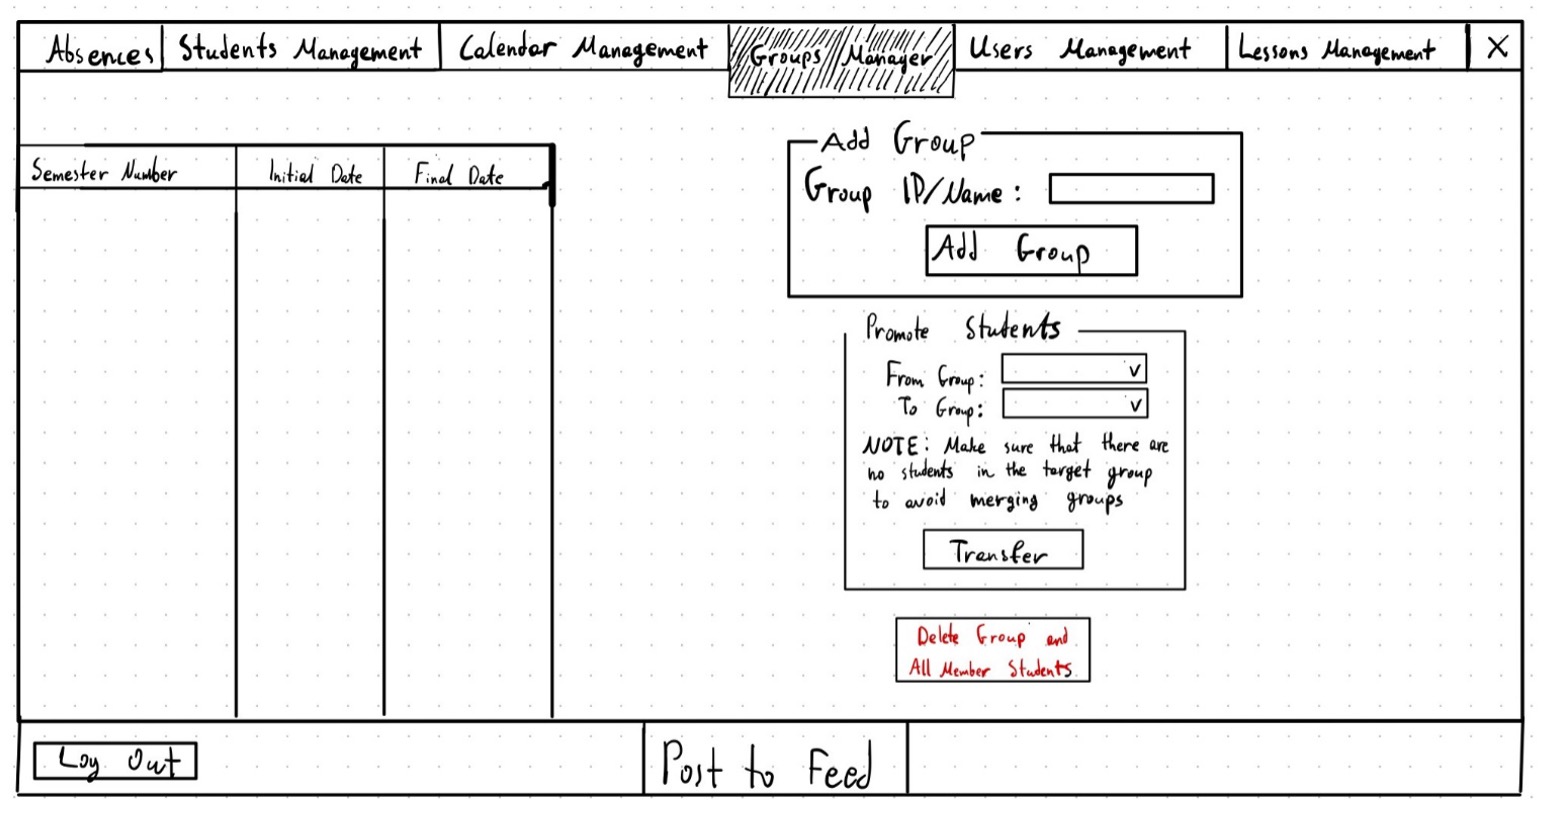 Absences Students Management Calendar Management Groups Manager Users Management Lessons Management X
Semester Number Initial Date Final Date
Add Group
Group ID/Name:
Add Group
Promote Students
From Group: v
To Group: v
NOTE: Make sure that there are
no students in the target group
to avoid merging groups
Transfer
Delete Group and
All Member Students
Log Out
Post to Feed